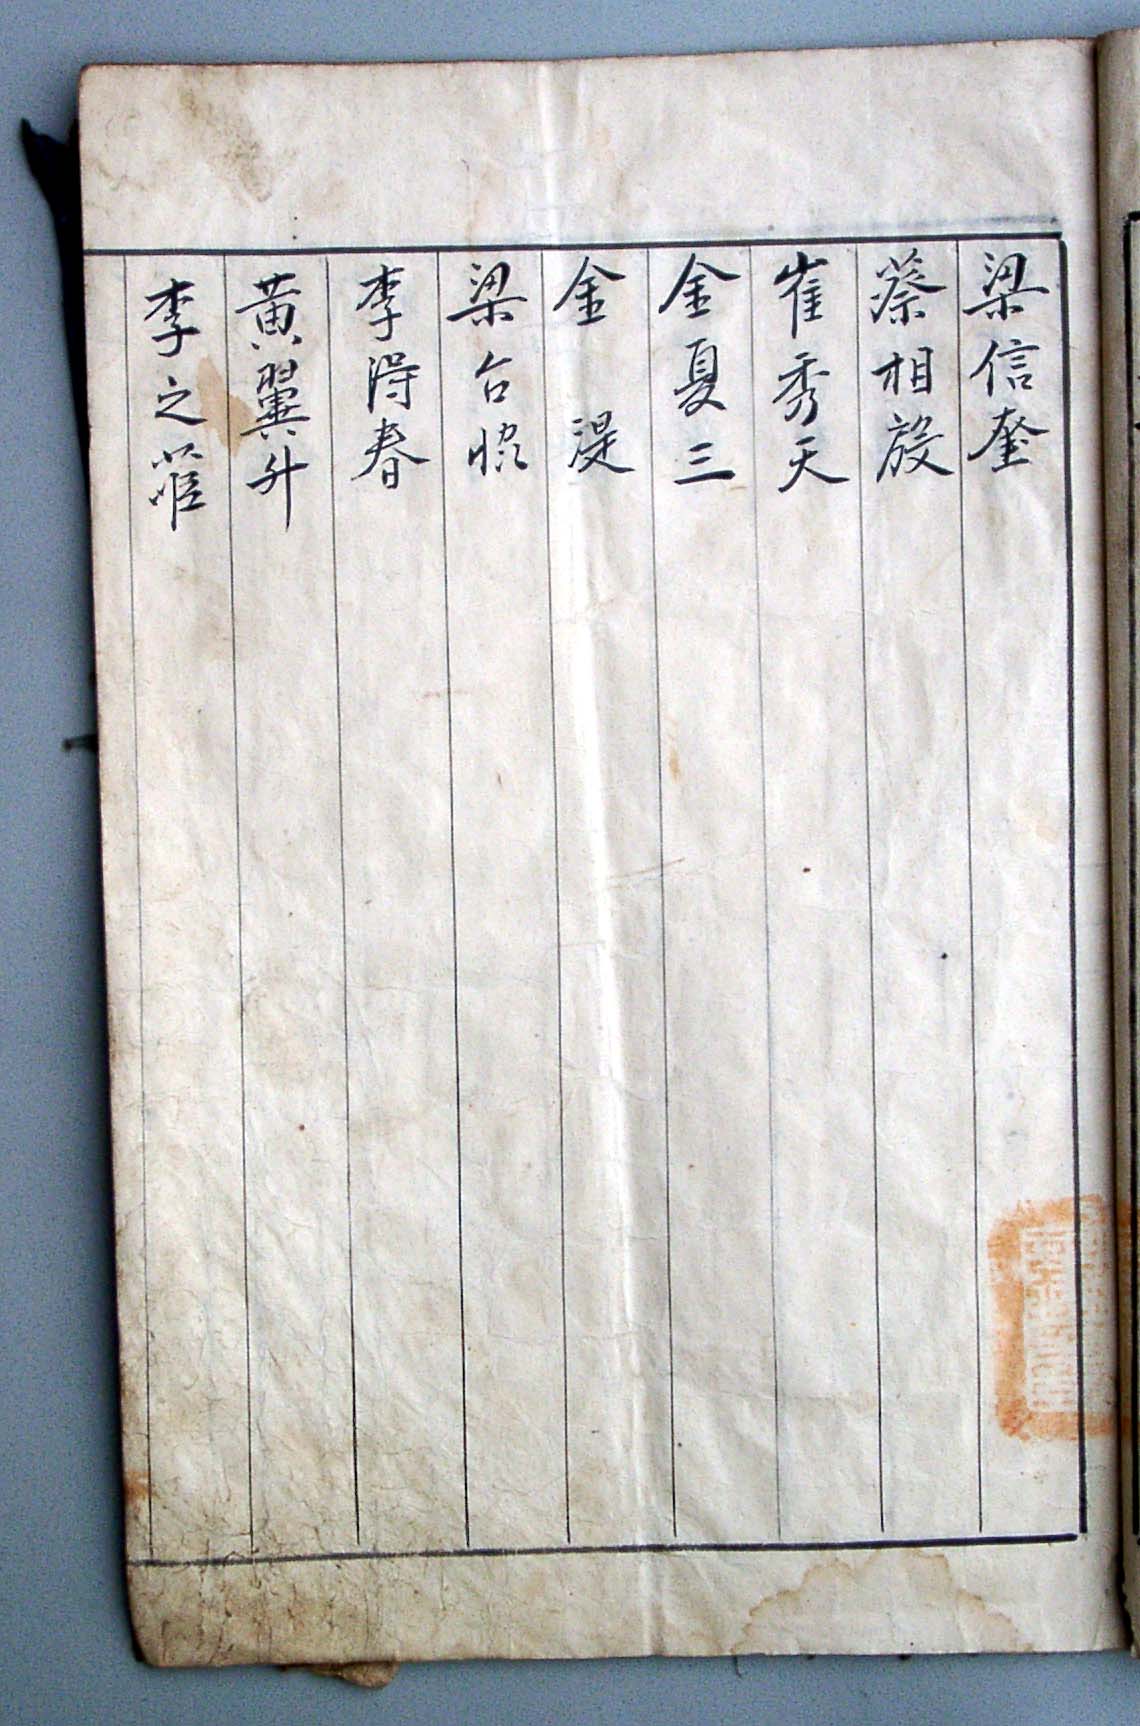 梁信奎
蔡相殷
崔秀天
金夏三
金湜
梁台
李淂春
黄翼升
李之